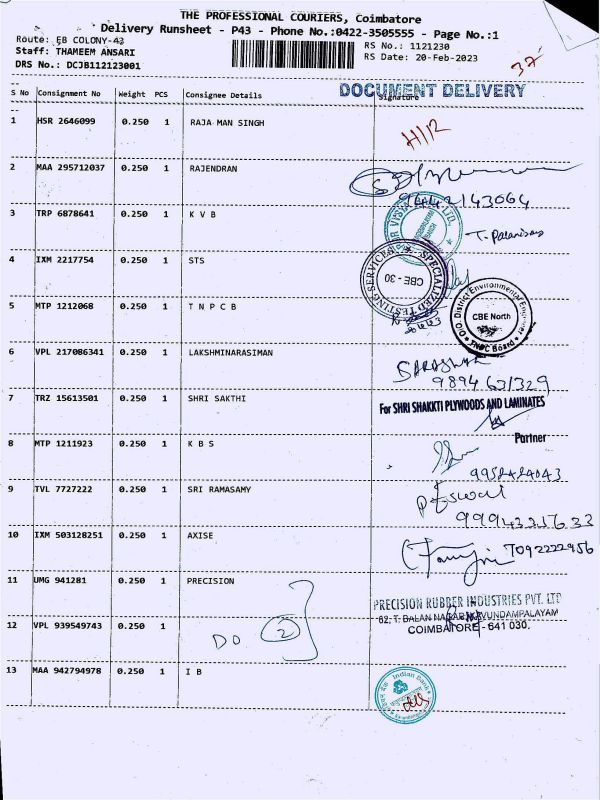 THE PROFESSIONAL COURIERS, Coimbatore
Delivery Runsheet - P43 - Phone No.:0422-3505555 - Page No.:1
Route: EB COLONY-43
Staff: THAMEEM ANSARI
DRS No.: DCJB112123001
RS No.: 1121230
RS Date: 20-Feb-2023
37
DOCUMENT DELIVERY
S No Consignment No Weight PCS Consignee Details Signature
1 HSR 2646099 0.250 1 RAJA MAN SINGH
2 MAA 295712037 0.250 1 RAJENDRAN
3 TRP 6878641 0.250 1 K V B
T. Palanisamy
4 IXM 2217754 0.250 1 STS
TESTING SERVICES SPECIALIZED
CBE - 30
5 MTP 1212068 0.250 1 T N P C B
O/O. District Environmental Engineer
CBE North
TNPC Board
6 VPL 217086341 0.250 1 LAKSHMINARASIMAN
9894631329
7 TRZ 15613501 0.250 1 SHRI SAKTHI
For SHRI SHAKKTI PLYWOODS AND LAMINATES
Partner
8 MTP 1211923 0.250 1 K B S
9952424043
9 TVL 7727222 0.250 1 SRI RAMASAMY
10 IXM 503128251 0.250 1 AXISE
7092222956
11 UMG 941281 0.250 1 PRECISION
PRECISION RUBBER INDUSTRIES PVT. LTD
12 VPL 939549743 0.250 1
DO 2
COIMBATORE - 641 030.
13 MAA 942794978 0.250 1 I B
Indian Bank